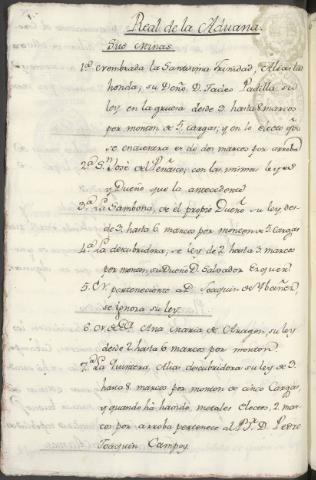 Real de la Aduana.
Sus Minas.
1.ª Nombrada la Santisima Trinidad, Alias la
honda, su Dueño D. Tadeo Padilla su
ley en la quiebra desde 3 hasta 8 marcos
por monton de 5 cargas, y en lo electo qe
se encuentra es de dos marcos por arroba
2.ª Sn José del Peñasco, con las mismas leyes
y Dueño que la antecedente
3.ª La Gambona, de el propio Dueño su ley, des-
de 3 hasta 6 marcos por monton de 5 Cargas
4.ª La descubridora, su Ley de 2 hasta 3 marcos
por monton, su Dueño D. Salvador Esquer
5. N. perteneciente a D Joaquin de Ybañez,
se ignora su ley.
6. N. de Dª Ana Maria de Aragon, su ley
desde 2 hasta 6 marcos por monton
7.ª La Quintera, Alias descubridora su ley de 3.
hasta 8 marcos por monton de cinco Cargas,
y quando há havido metales electos, 2 mar-
cos por arroba pertenece al Br. D. Pedro
Joaquin Campoy